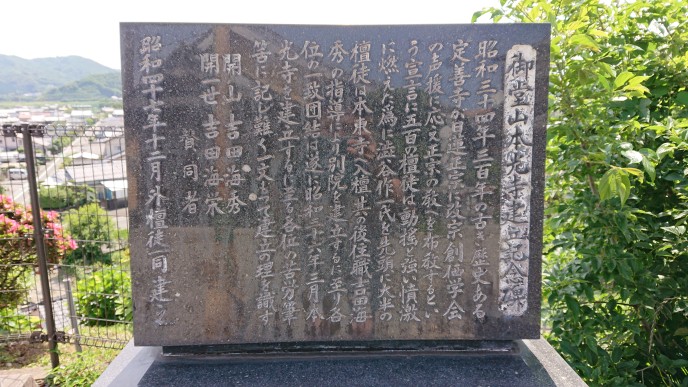 御登山本光寺建立記念碑
昭和三十四年三百年の古き歴史ある
定善寺の日蓮正宗に改宗創価学会
の声援に応え正宗の教へを布敎するとい
う宣言に五百の檀徒は動揺し強い情激
に燃えた為に渋谷作一氏を先頭に大半の
檀徒は本東寺へ入檀共の後住職吉田海
秀の指導により別院を建立するに至り各
位の一致団結は遂に昭和三十六年三月本
光寺を建立するに至る各位の苦労筆
舌に記し難く一文を以て建立の理を識す
開山 吉田海秀
開世 吉田海栄
賛同者
昭和四十七年十二月 外檀徒一同建之